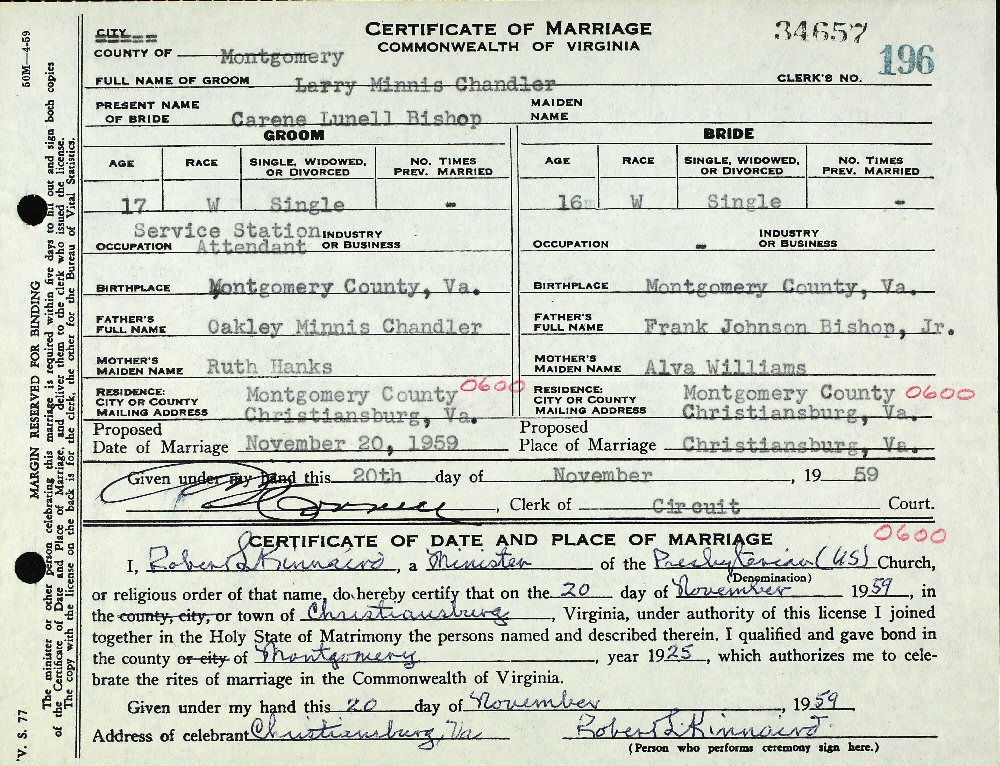 CERTIFICATE OF MARRIAGE
COMMONWEALTH OF VIRGINIA
34657
CITY
COUNTY OF Montgomery
CLERK'S NO. 196
FULL NAME OF GROOM Larry Minnis Chandler
PRESENT NAME OF BRIDE Carene Lunell Bishop MAIDEN NAME
GROOM BRIDE
AGE RACE SINGLE, WIDOWED, OR DIVORCED NO. TIMES PREV. MARRIED AGE RACE SINGLE, WIDOWED, OR DIVORCED NO. TIMES PREV. MARRIED
17 W Single - 16 W Single -
OCCUPATION Service Station Attendant INDUSTRY OR BUSINESS OCCUPATION - INDUSTRY OR BUSINESS
BIRTHPLACE Montgomery County, Va. BIRTHPLACE Montgomery County, Va.
FATHER'S FULL NAME Oakley Minnis Chandler FATHER'S FULL NAME Frank Johnson Bishop, Jr.
MOTHER'S MAIDEN NAME Ruth Hanks MOTHER'S MAIDEN NAME Alva Williams
RESIDENCE: CITY OR COUNTY Montgomery County 0600 RESIDENCE: CITY OR COUNTY Montgomery County 0600
MAILING ADDRESS Christiansburg, Va. MAILING ADDRESS Christiansburg, Va.
Proposed Date of Marriage November 20, 1959 Proposed Place of Marriage Christiansburg, Va.
Given under my hand this 20th day of November, 1959
, Clerk of Circuit Court.
CERTIFICATE OF DATE AND PLACE OF MARRIAGE 0600
I, Robert L Kinnaird, a Minister of the Presbyterian (US) Church,
(Denomination)
or religious order of that name, do hereby certify that on the 20 day of November 1959, in
the county, city, or town of Christiansburg, Virginia, under authority of this license I joined
together in the Holy State of Matrimony the persons named and described therein. I qualified and gave bond in
the county or city of Montgomery, year 1925, which authorizes me to cele-
brate the rites of marriage in the Commonwealth of Virginia.
Given under my hand this 20 day of November, 1959
Address of celebrant Christiansburg, Va Robert L Kinnaird
(Person who performs ceremony sign here.)
50M—4-59
MARGIN RESERVED FOR BINDING
The minister or other person celebrating this marriage is required within five days to fill out and sign both copies
of the Certificate of Date and Place of Marriage, and deliver them to the clerk who issued the license.
The copy with the license on the back is for the clerk, the other for the Bureau of Vital Statistics.
V. S. 77